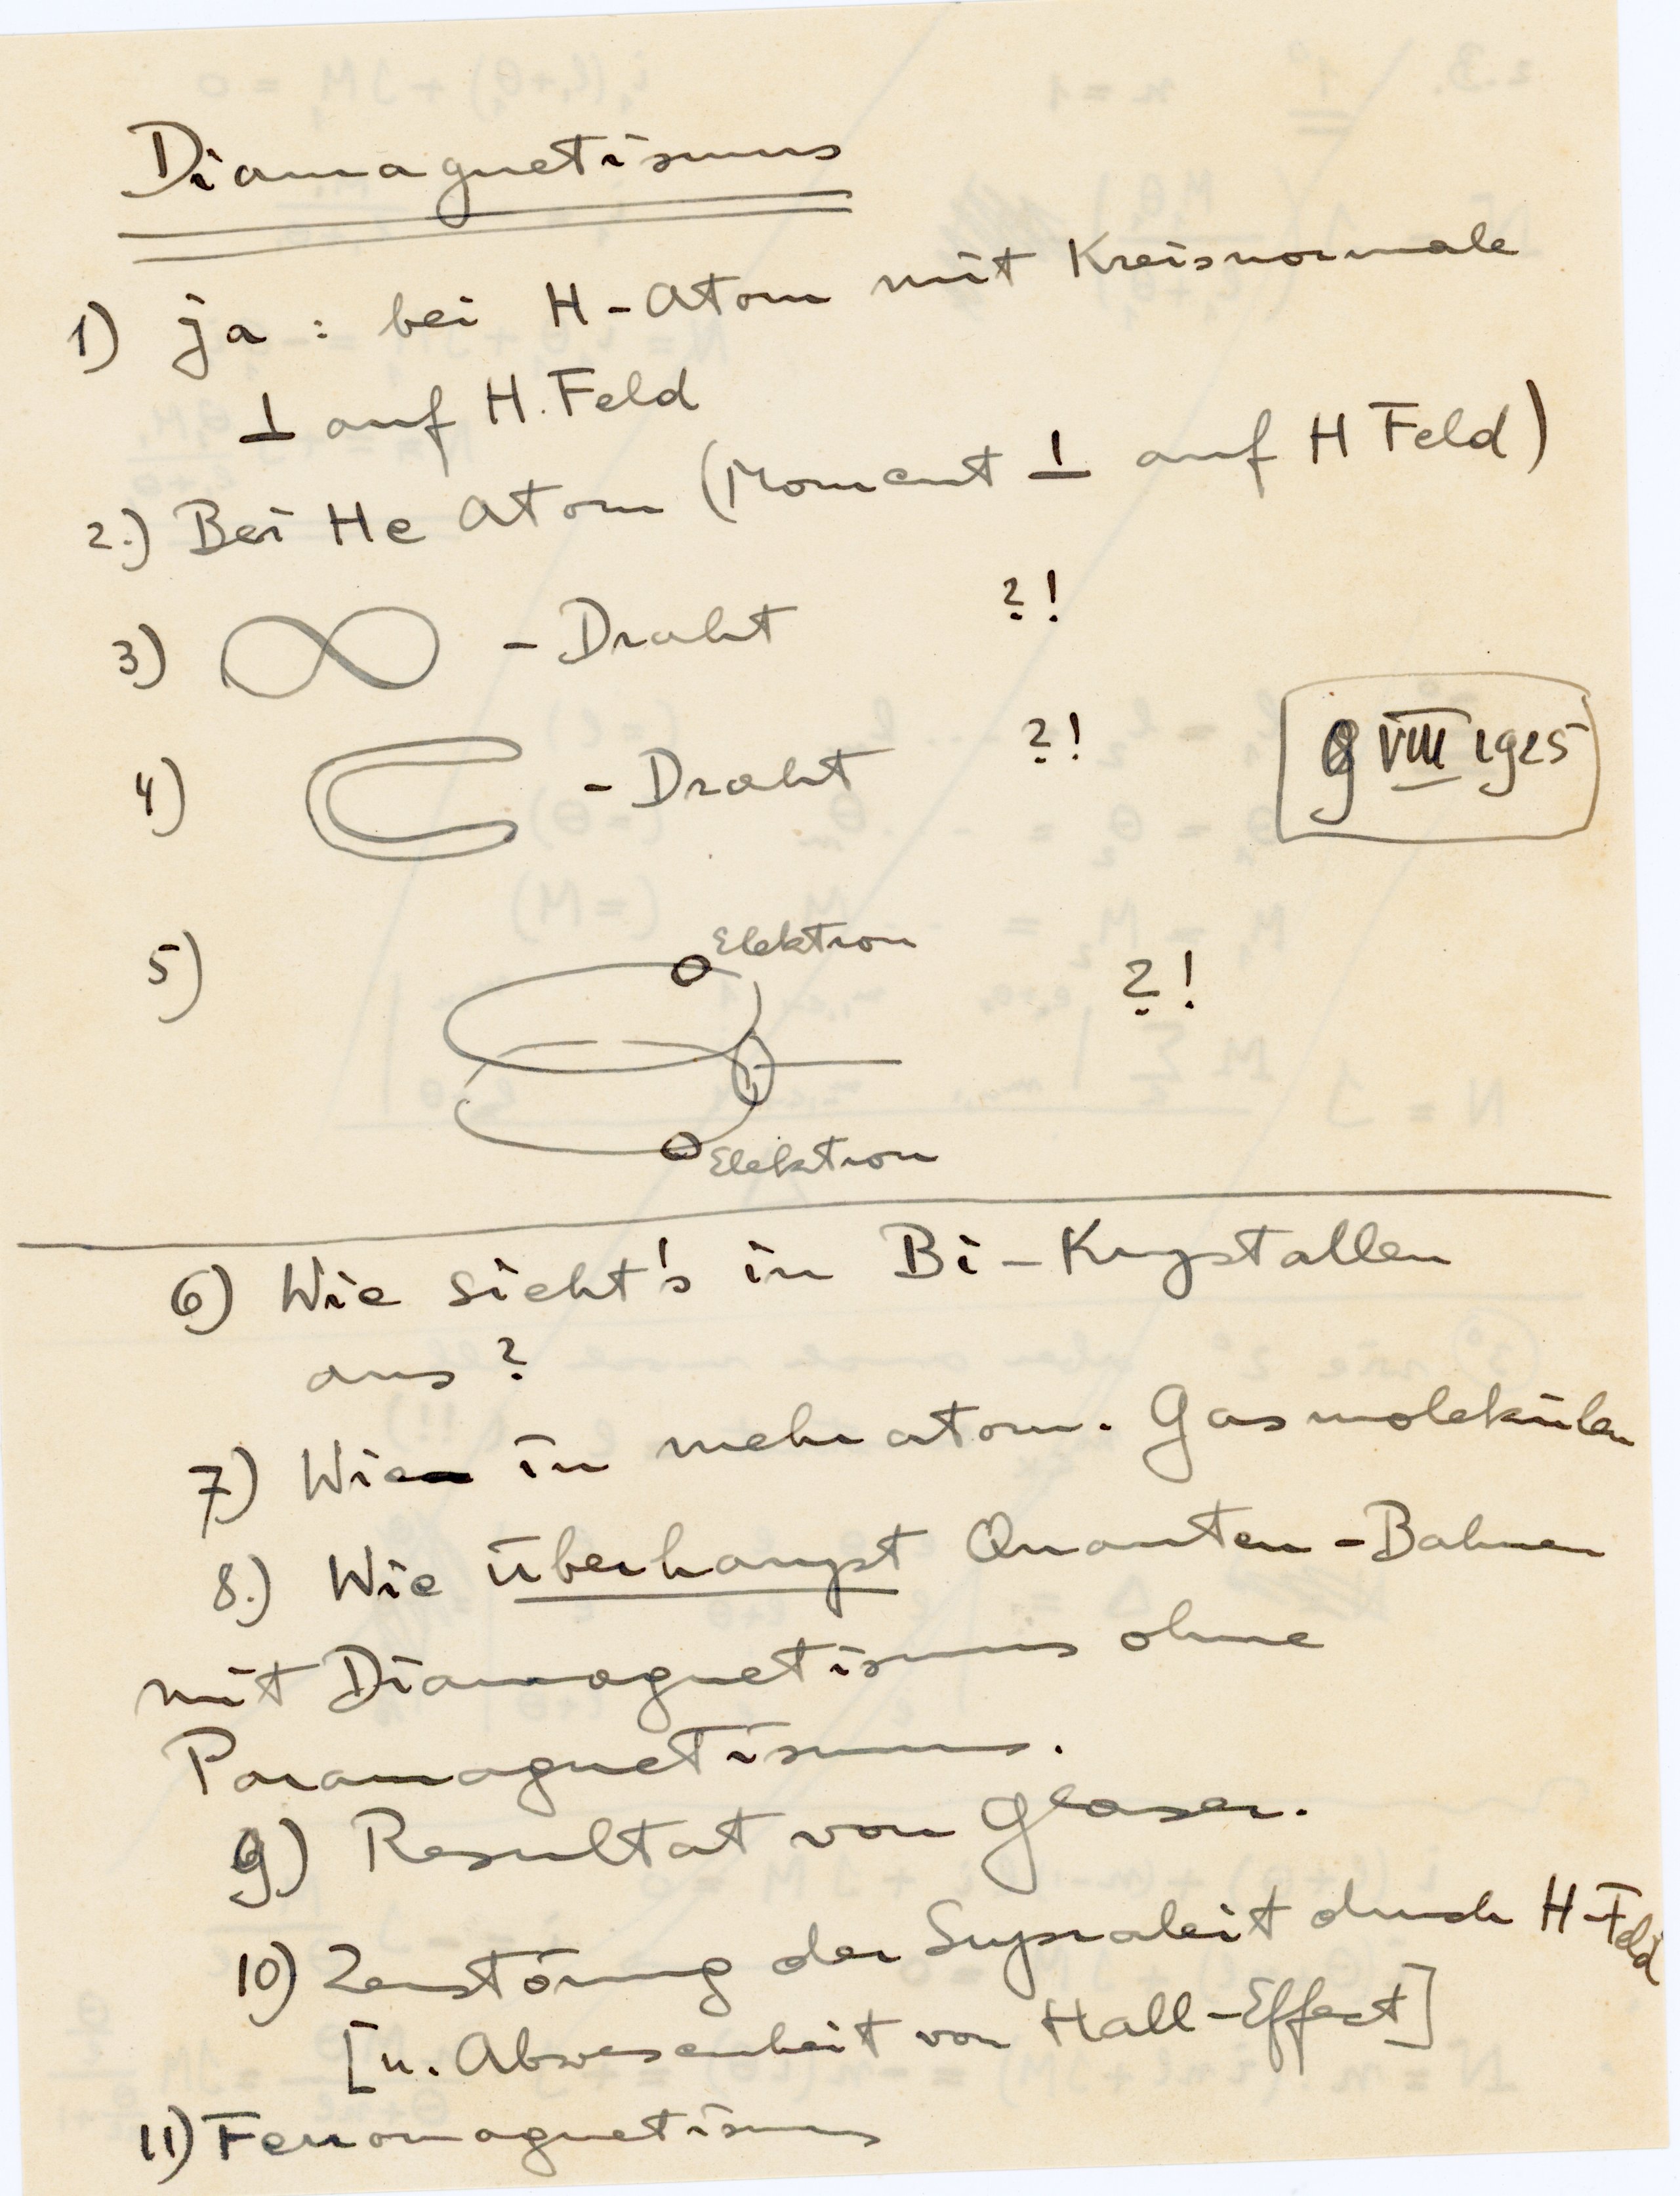 Diamagnetismus
1) ja : bei H-Atom mit Kreisnormale
⊥ auf H. Feld
2.) Bei He Atom (Moment ⊥ auf H Feld)
3) ∞ - Draht ?!
4) - Draht ?!
9 VIII 1925
5) Elektron
?!
Elektron
6) Wie sieht's in Bi-Krystallen
aus ?
7) Wie in mehratom. Gasmolekülen
8.) Wie überhaupt Quanten-Bahnen
mit Diamagnetismus ohne
Paramagnetismus.
9) Resultat von Glaser.
10) Zerstörung der Supraleit durch H-Feld
[u. Abwesenheit von Hall-Effect]
11) Ferromagnetismus